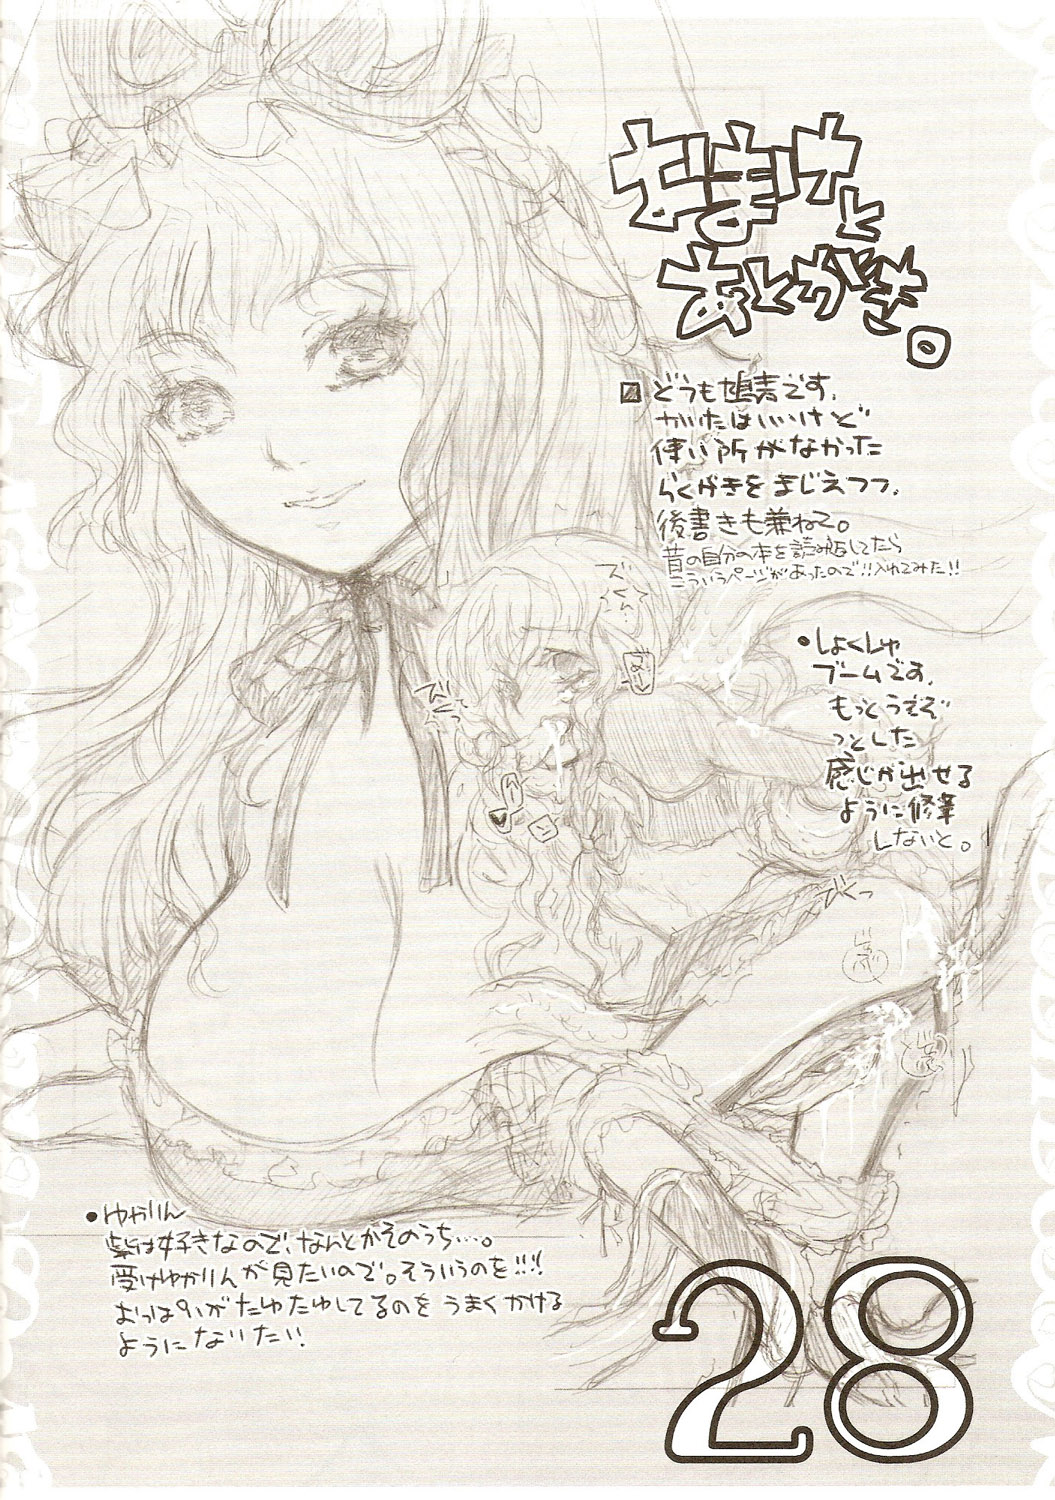 おまけと
あとがき。
どうも鳩麦です。
かいたはいいけど
使い所がなかった
らくがきをまじえつつ、
後書きも兼ねて。
昔の自分の本を読み返してたら
こういうページがあったので!!入れてみた!!
ズ
ズ
•しょくしゅ
ブームです。
もっとうぞぞ
っとした
感じが出せる
ように修業
しないと。
びくっ
•ゆかりん
紫は好きなので、なんとかそのうち…。
受けゆかりんが見たいので。そういうのを!!!!
おっぱいがたゆたゆしてるのをうまくかける
ようになりたい!
28